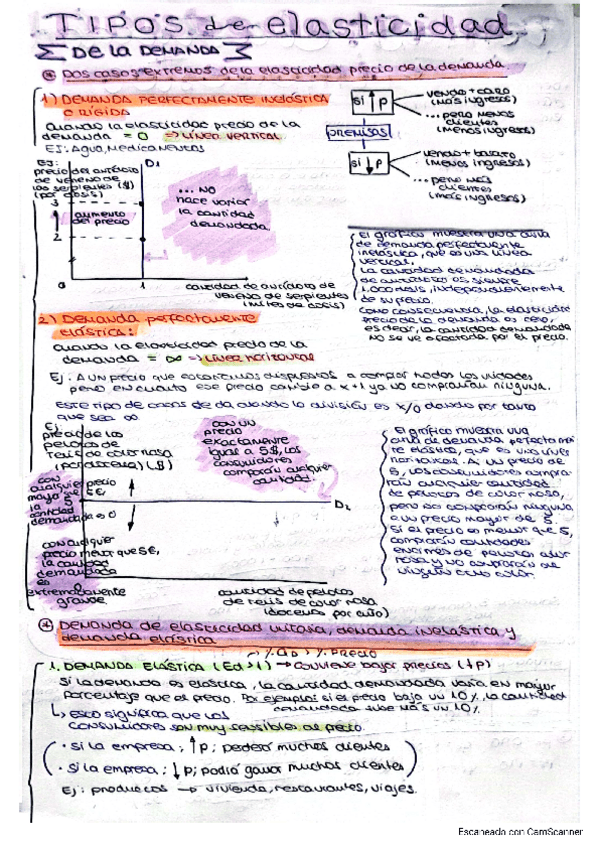 TIPOS de elasticidad
DE LA DEMANDA
Dos casos extremos de la elasticidad precio de la demanda.
1) DEMANDA PERFECTAMENTE INELÁSTICA
O RÍGIDA
Cuando la elasticidad precio de la
demanda = 0 => LÍNEA VERTICAL
EJ: Agua, Medicamentos
si ↑ P
vendo + caro
(más ingresos)
... pero menos
clientes
(menos ingresos)
premisas
si ↓ P
vendo + barato
(menos ingresos)
... pero más
clientes
(más ingresos)
EJ:
precio del antídoto
de veneno de
las serpientes ($)
(por dosis)
D1
3
aumento
del precio
2
0
1
... NO
hace variar
la cantidad
demandada
cantidad de antídoto de
veneno de serpientes
(miles de dosis)
El gráfico muestra una curva
de demanda perfectamente
inelástica, que es una línea
vertical.
La cantidad demandada
de antídoto es siempre
1.000 dosis, independientemente
de su precio.
Como consecuencia, la elasticidad
precio de la demanda es cero,
es decir, la cantidad demandada
no se ve afectada por el precio.
2) Demanda perfectamente
elástica:
cuando la elasticidad precio de la
demanda = ∞ => LÍNEA HORIZONTAL
Ej: A UN precio que estaríamos dispuestos a comprar todas las unidades
pero en cuanto ese precio cambie a x+1 ya no comprarían ninguna.
Este tipo de casos se da cuando la división es x/0 dando por tanto
que sea ∞
Ej:
precio de las
pelotas de
tenis de color rosa
(por docena) ($)
con un
precio
exactamente
igual a 5$, los
consumidores
comprarán cualquier
cantidad.
con
cualquier precio
mayor que 5€,
la
cantidad
demandada es 0
5
D2
con cualquier
precio menor que 5€,
la cantidad
demandada
es
extremadamente
grande
cantidad de pelotas
de tenis de color rosa
(docenas por año)
El gráfico muestra una
curva de demanda perfectamen
te elástica, que es una línea
horizontal. A un precio de
5, los consumidores compra
rán cualquier cantidad
de pelotas de color rosa,
pero no comprarán ninguna
a un precio mayor de 5.
Si el precio es menor que 5,
comprarán cantidades
enormes de pelotas color
rosa y no comprarán de
ningún otro color.
Demanda de elasticidad unitaria, demanda inelástica y
demanda elástica
1. DEMANDA ELÁSTICA (Ed > 1) → conviene bajar precios (↓P)
Si la demanda es elástica, la cantidad demandada varía en mayor
porcentaje que el precio. Por ejemplo: si el precio baja un 10%, la cantidad
demandada sube más un 10%
↳ esto significa que los
consumidores son muy sensibles al precio.
· Si la empresa ; ↑ p; perderá muchos clientes
· Si la empresa ; ↓ p; podría ganar muchos clientes
Ej: productos → vivienda, restaurantes, viajes.
Escaneado con CamScanner